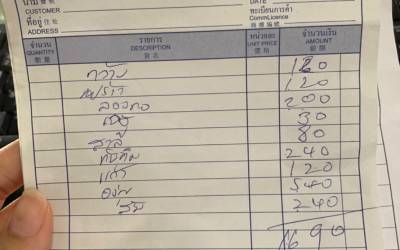 CUSTOMER DATE
ที่อยู่ 住址 ทะเบียนการค้า
ADDRESS CommLicence
จำนวน รายการ หน่วยละ จำนวนเงิน
QUANTITY DESCRIPTION UNIT PRICE AMOUNT
數量 貨名 價格 銀額
120
120
ลองกอง 200
30
สาลี่ 80
ทับทิม 240
120
องุ่น 540
ส้ม 240
1690